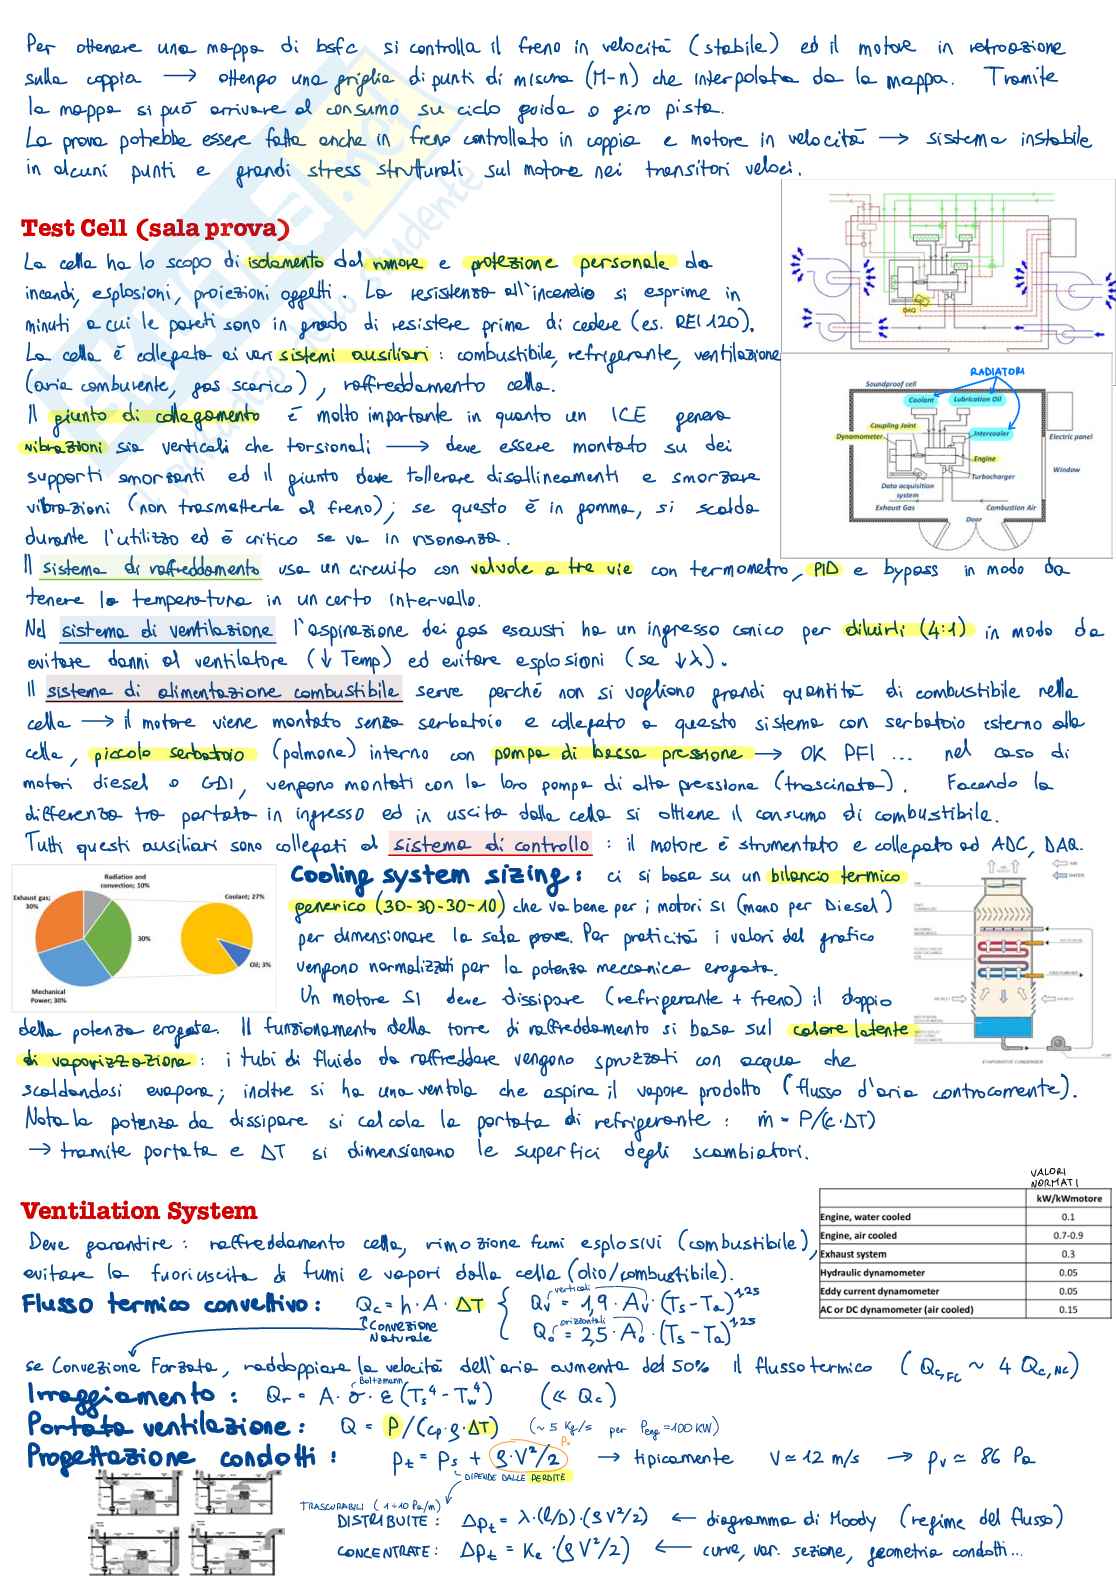 Per ottenere una mappa di bsfc si controlla il freno in velocità (stabile) ed il motore in retroazione
sulla coppia → ottengo una griglia di punti di misura (M-n) che interpolata da la mappa. Tramite
la mappa si può arrivare al consumo su ciclo guida o giro pista.
La prova potrebbe essere fatta anche in freno controllato in coppia e motore in velocità → sistema instabile
in alcuni punti e grandi stress strutturali sul motore nei transitori veloci.
Test Cell (sala prova)
La cella ha lo scopo di isolamento dal rumore e protezione personale da
incendi, esplosioni, proiezioni oggetti. La resistenza all'incendio si esprime in
minuti a cui le pareti sono in grado di resistere prima di cedere (es. REI 120).
La cella è collegata ai vari sistemi ausiliari: combustibile, refrigerante, ventilazione
(aria comburente, gas scarico), raffreddamento cella.
Il giunto di collegamento è molto importante in quanto un ICE genera
vibrazioni sia verticali che torsionali → deve essere montato su dei
supporti smorzanti ed il giunto deve tollerare disallineamenti e smorzare
vibrazioni (non trasmetterle al freno); se questo è in gomma, si scalda
durante l'utilizzo ed è critico se va in risonanza.
DAQ
RADIATORI
Soundproof cell
Coolant
Lubrication Oil
Coupling Joint
Dynamometer
Intercooler
Electric panel
Engine
Turbocharger
Window
Data acquisition
system
Exhaust Gas
Combustion Air
Door
Il sistema di raffreddamento usa un circuito con valvole a tre vie con termometro, PID e bypass in modo da
tenere la temperatura in un certo intervallo.
Nel sistema di ventilazione l'aspirazione dei gas esausti ha un ingresso conico per diluirli (4:1) in modo da
evitare danni al ventilatore (↓ Temp) ed evitare esplosioni (se ↓λ).
Il sistema di alimentazione combustibile serve perché non si vogliono grandi quantità di combustibile nella
cella → il motore viene montato senza serbatoio e collegato a questo sistema con serbatoio esterno alla
cella, piccolo serbatoio (polmone) interno con pompa di bassa pressione → OK PFI ... nel caso di
motori diesel o GDI, vengono montati con la loro pompa di alta pressione (trascinata). Facendo la
differenza tra portata in ingresso ed in uscita dalla cella si ottiene il consumo di combustibile.
Tutti questi ausiliari sono collegati al sistema di controllo: il motore è strumentato e collegato ad ADC, DAQ.
Radiation and
convection; 10%
Exhaust gas;
30%
30%
Mechanical
Power; 30%
Coolant; 27%
Oil; 3%
Cooling system sizing: ci si basa su un bilancio termico
generico (30-30-30-10) che va bene per i motori SI (meno per Diesel)
per dimensionare la sala prove. Per praticità i valori del grafico
vengono normalizzati per la potenza meccanica erogata.
Un motore SI deve dissipare (refrigerante + freno) il doppio
della potenza erogata. Il funzionamento della torre di raffreddamento si basa sul calore latente
di vaporizzazione: i tubi di fluido da raffreddare vengono spruzzati con acqua che
scaldandosi evapora; inoltre si ha una ventola che aspira il vapore prodotto (flusso d'aria controcorrente).
Nota la potenza da dissipare si calcola la portata di refrigerante: ṁ = P/(c·ΔT)
→ tramite portata e ΔT si dimensionano le superfici degli scambiatori.
AIR
WATER
EVAPORATIVE CONDENSER
Ventilation System
Deve garantire: raffreddamento cella, rimozione fumi esplosivi (combustibile),
evitare la fuoriuscita di fumi e vapori dalla cella (olio/combustibile).
VALORI
NORMATI
kW/kWmotore
Engine, water cooled 0.1
Engine, air cooled 0.7-0.9
Exhaust system 0.3
Hydraulic dynamometer 0.05
Eddy current dynamometer 0.05
AC or DC dynamometer (air cooled) 0.15
Flusso termico convettivo: Qc = h·A·ΔT { Qv = 1,9·Av·(Ts-Ta)^1,25
verticali
Convezione
Naturale
orizzontali
Qo = 2,5·Ao·(Ts-Ta)^1,25
se Convezione Forzata, raddoppiare la velocità dell'aria aumenta del 50% il flusso termico (Qc,FC ~ 4 Qc,NC)
Boltzmann
Irraggiamento: Qr = A·σ·ε(Ts⁴-Tw⁴) (≪ Qc)
Portata ventilazione: Q = P/(cp·ρ·ΔT) (~5 Kg/s per Peng=100 KW)
Progettazione condotti: pt = ps + ρ·V²/2 Pv → tipicamente V≃12 m/s → pv ≃ 86 Pa
DIPENDE DALLE PERDITE
TRASCURABILI (1÷10 Pa/m)
DISTRIBUITE: Δpt = λ·(l/D)·(ρV²/2) ← diagramma di Moody (regime del flusso)
CONCENTRATE: Δpt = Ke·(ρV²/2) ← curve, var. sezione, geometria condotti...